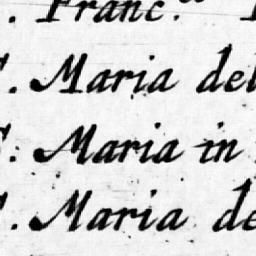 . Franc.
. Maria del
. Maria in
. Maria de